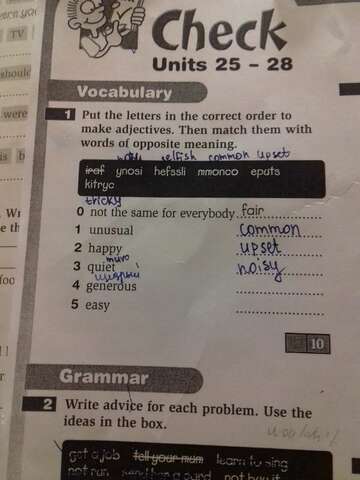 TV
Check
Units 25 – 28
should
Vocabulary
were
1 Put the letters in the correct order to
make adjectives. Then match them with
words of opposite meaning.
selfish common upset
iraf ynosi hefssli mmonco eputs
kitryc
tricky
0 not the same for everybody fair
1 unusual common
2 happy upset
3 quiet noisy
4 generous
5 easy
10
Grammar
2 Write advice for each problem. Use the
ideas in the box.
get a job tell your mum learn to sing
not run send her a card not buy it